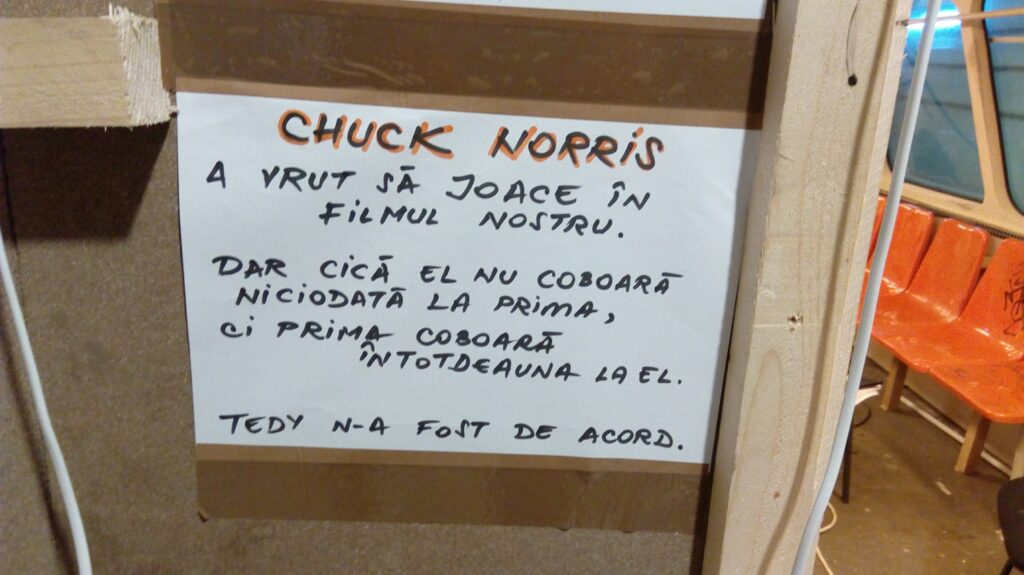 CHUCK NORRiS
A VRUT SĂ JOACE ÎN
FiLMUL NOSTRU.
DAR CiCĂ EL NU COBOARĂ
NiCiODATĂ LA PRiMA,
Ci PRiMA COBOARĂ
ÎNTOTDEAUNA LA EL.
TEDY N-A FOST DE ACORD.